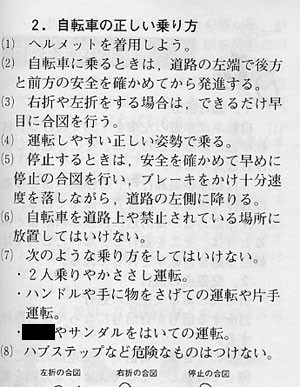 2．自転車の正しい乗り方
(1) ヘルメットを着用しよう。
(2) 自転車に乗るときは，道路の左端で後方
と前方の安全を確かめてから発進する。
(3) 右折や左折をする場合は，できるだけ早
目に合図を行う。
(4) 運転しやすい正しい姿勢で乗る。
(5) 停止するときは，安全を確かめて早めに
停止の合図を行い，ブレーキをかけ十分速
度を落しながら，道路の左側に降りる。
(6) 自転車を道路上や禁止されている場所に
放置してはいけない。
(7) 次のような乗り方をしてはいけない。
・2人乗りやかささし運転。
・ハンドルや手に物をさげての運転や片手
運転。
・やサンダルをはいての運転。
(8) ハブステップなど危険なものはつけない。
左折の合図 右折の合図 停止の合図